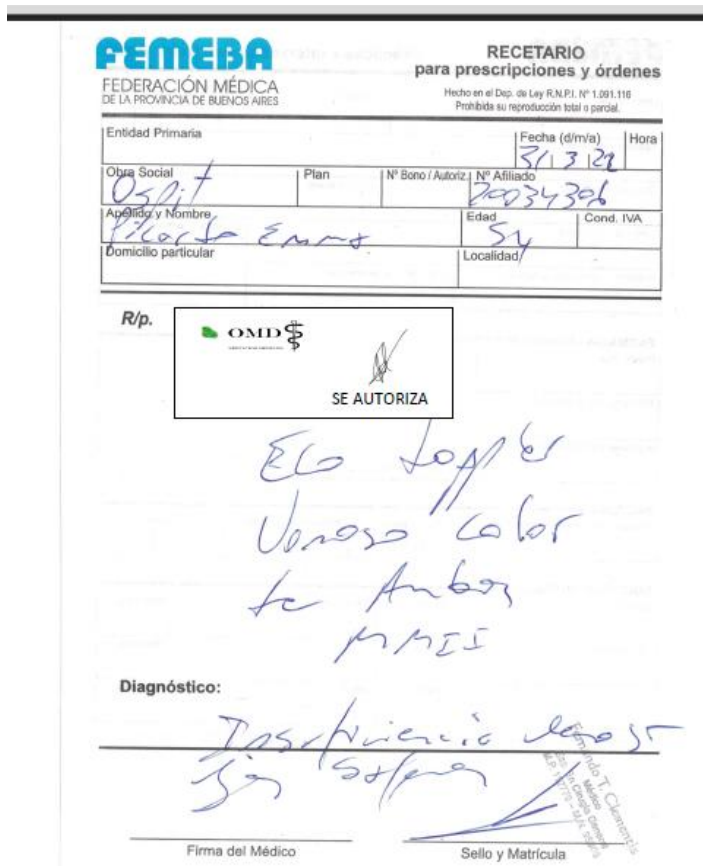 FEMEBA
FEDERACIÓN MÉDICA
DE LA PROVINCIA DE BUENOS AIRES
RECETARIO
para prescripciones y órdenes
Hecho en el Dep. de Ley R.N.P.I. Nº 1.091.116
Prohibida su reproducción total o parcial.
Entidad Primaria
Fecha (d/m/a) Hora
3/ 3 22
Obra Social Plan Nº Bono / Autoriz. Nº Afiliado
Ospit 20034396
Apellido y Nombre Edad Cond. IVA
Emma 54
Domicilio particular Localidad
R/p.
OMD
SE AUTORIZA
Eco Doppler
Venoso Color
de Ambos
MMII
Diagnóstico:
Insuficiencia Venosa
Firma del Médico Sello y Matrícula
Fernando T. Clementis
Médico